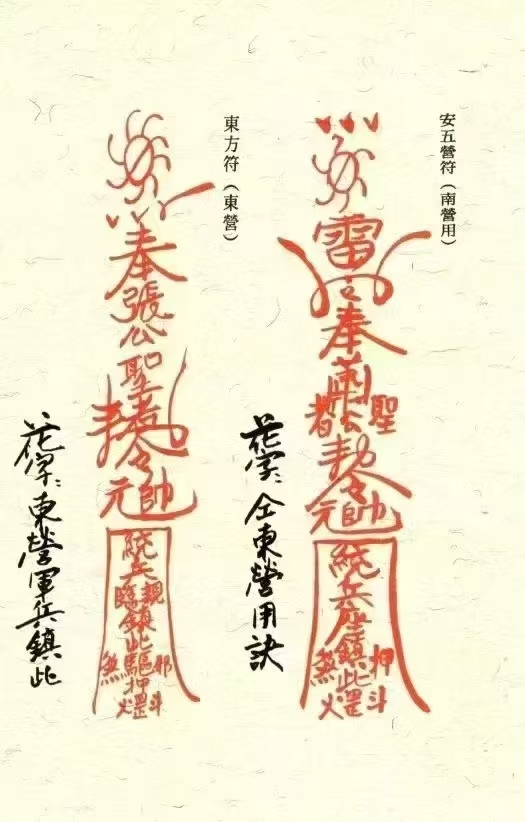 安五營符（南營用）
雷令奉蕭公聖者勅令元帥
統兵座鎮此押煞
花字：仝東營用訣
東方符（東營）
奉張公聖者勅令元帥
統兵親臨鎮此驅邪押煞
花字：東營軍兵鎮此